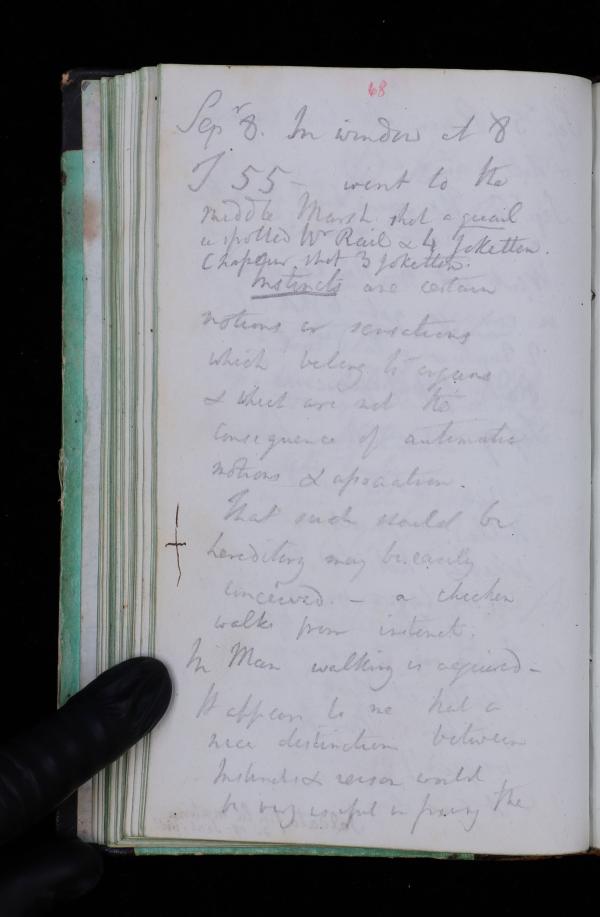 68
Sepr 8. In window at 8
T 55 - went to the
middle Marsh shot a quail
a spotted Wr Rail & 4 Joketton.
shot 3 Joketton.
Instincts are certain
motions or sensations
which belong to organs
& which are not the
consequence of automatic
motions & association.
That such should be
hereditary may be easily
conceived. - a chicken
walks from instinct.
In Man walking is acquired -
It appears to me that a
nice distinction between
Instincts & reason would
be very useful in the